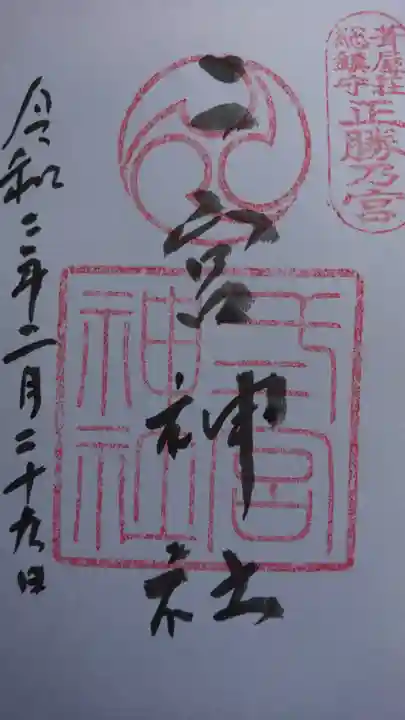 葺屋荘
総鎮守
正勝乃宮
二宮神社
宮
神社
令和二年二月二十九日